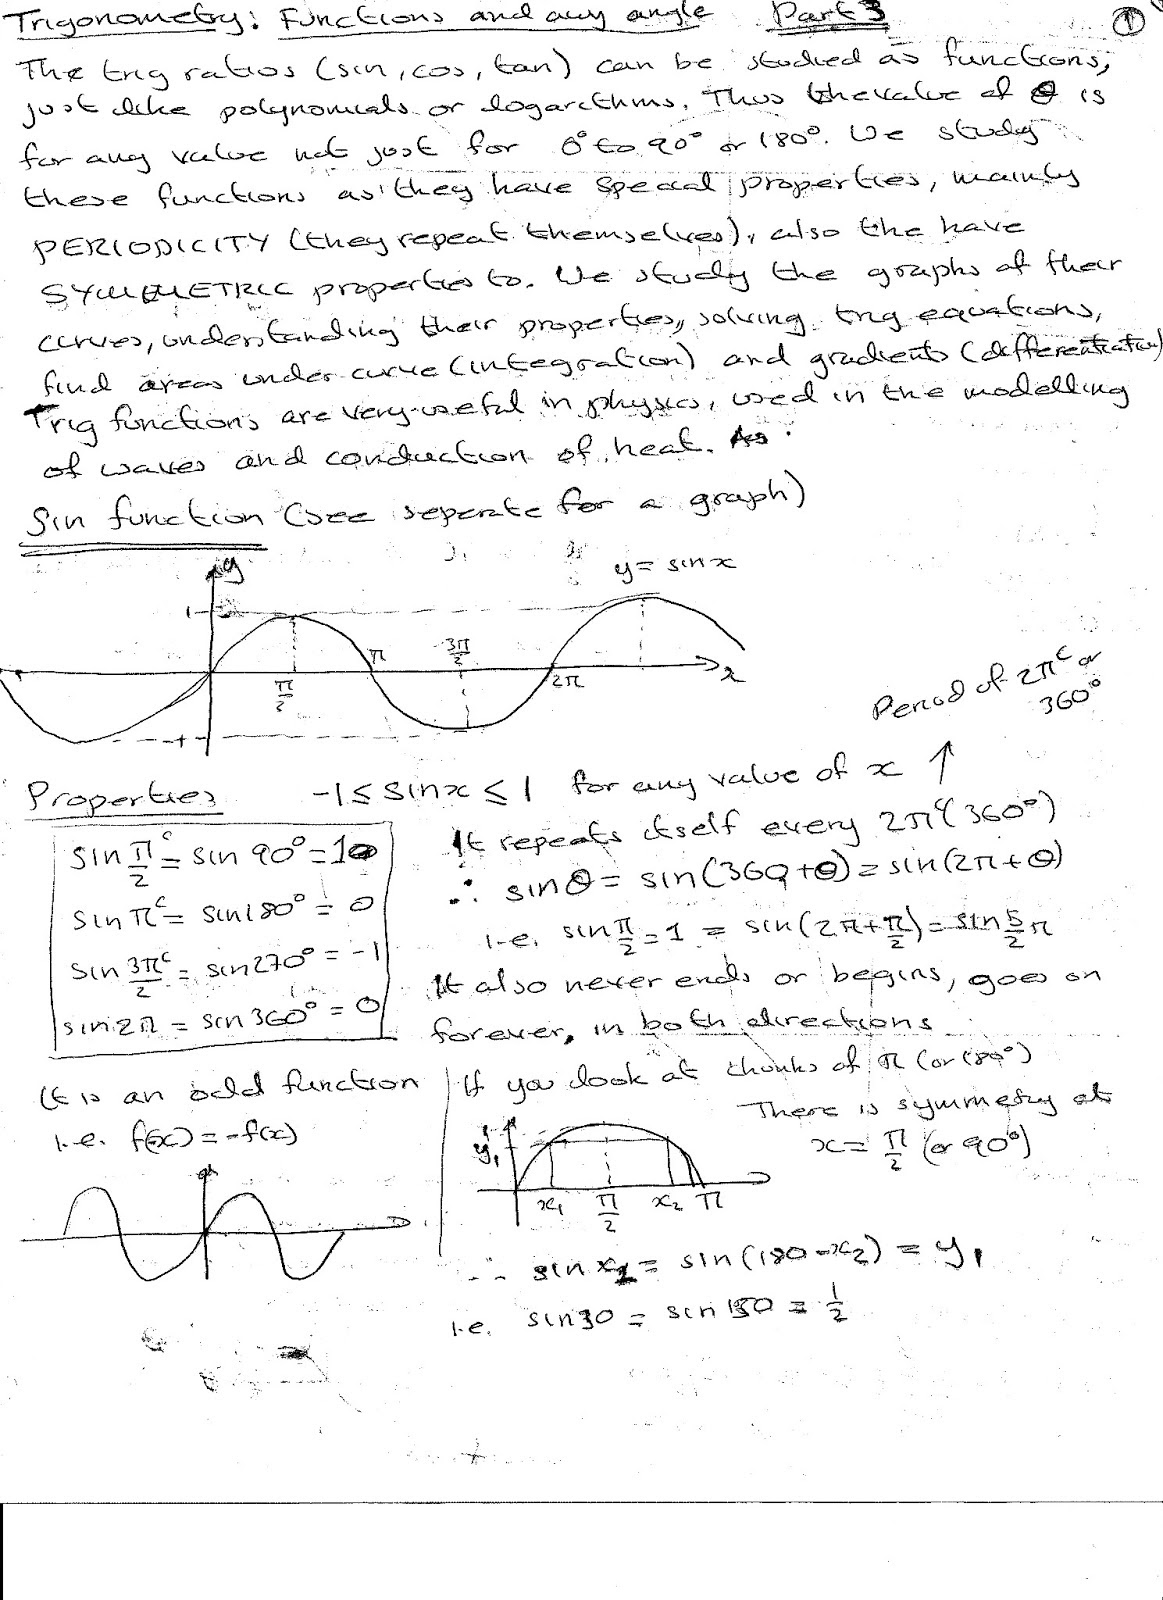 Trigonometry: Functions and any angle Part 3 ①
The trig ratios (sin, cos, tan) can be studied as functions,
just like polynomials or logarithms. Thus the value of θ is
for any value not just for 0° to 90° or 180°. We study
these functions as they have special properties, mainly
PERIODICITY (they repeat themselves), also the have
SYMMETRIC properties to. We study the graphs of their
curves, understanding their properties, solving trig equations,
find areas under curve (integration) and gradients (differentiation)
Trig functions are very useful in physics, used in the modelling
of waves and conduction of heat.
Sin function (see seperate for a graph)
y
y = sinx
1
π/2
π
3π/2
2π
x
-1
Period of 2πᶜ or
360°
Properties -1 ≤ sinx ≤ 1 for any value of x ↑
sin π/2ᶜ = sin 90° = 1
sin πᶜ = sin 180° = 0
sin 3π/2ᶜ = sin 270° = -1
sin 2π = sin 360° = 0
It repeats itself every 2πᶜ (360°)
∴ sinθ = sin(360+θ) = sin(2π+θ)
i.e. sin π/2 = 1 = sin(2π+π/2) = sin 5/2 π
It also never ends or begins, goes on
forever, in both directions
It is an odd function
i.e. f(-x) = -f(x)
If you look at chunks of π (or 180°)
There is symmetry at
x = π/2 (or 90°)
1
y₁
x₁ π/2 x₂ π
∴ sin x₁ = sin(180-x₂) = y₁
i.e. sin30 = sin 150 = 1/2